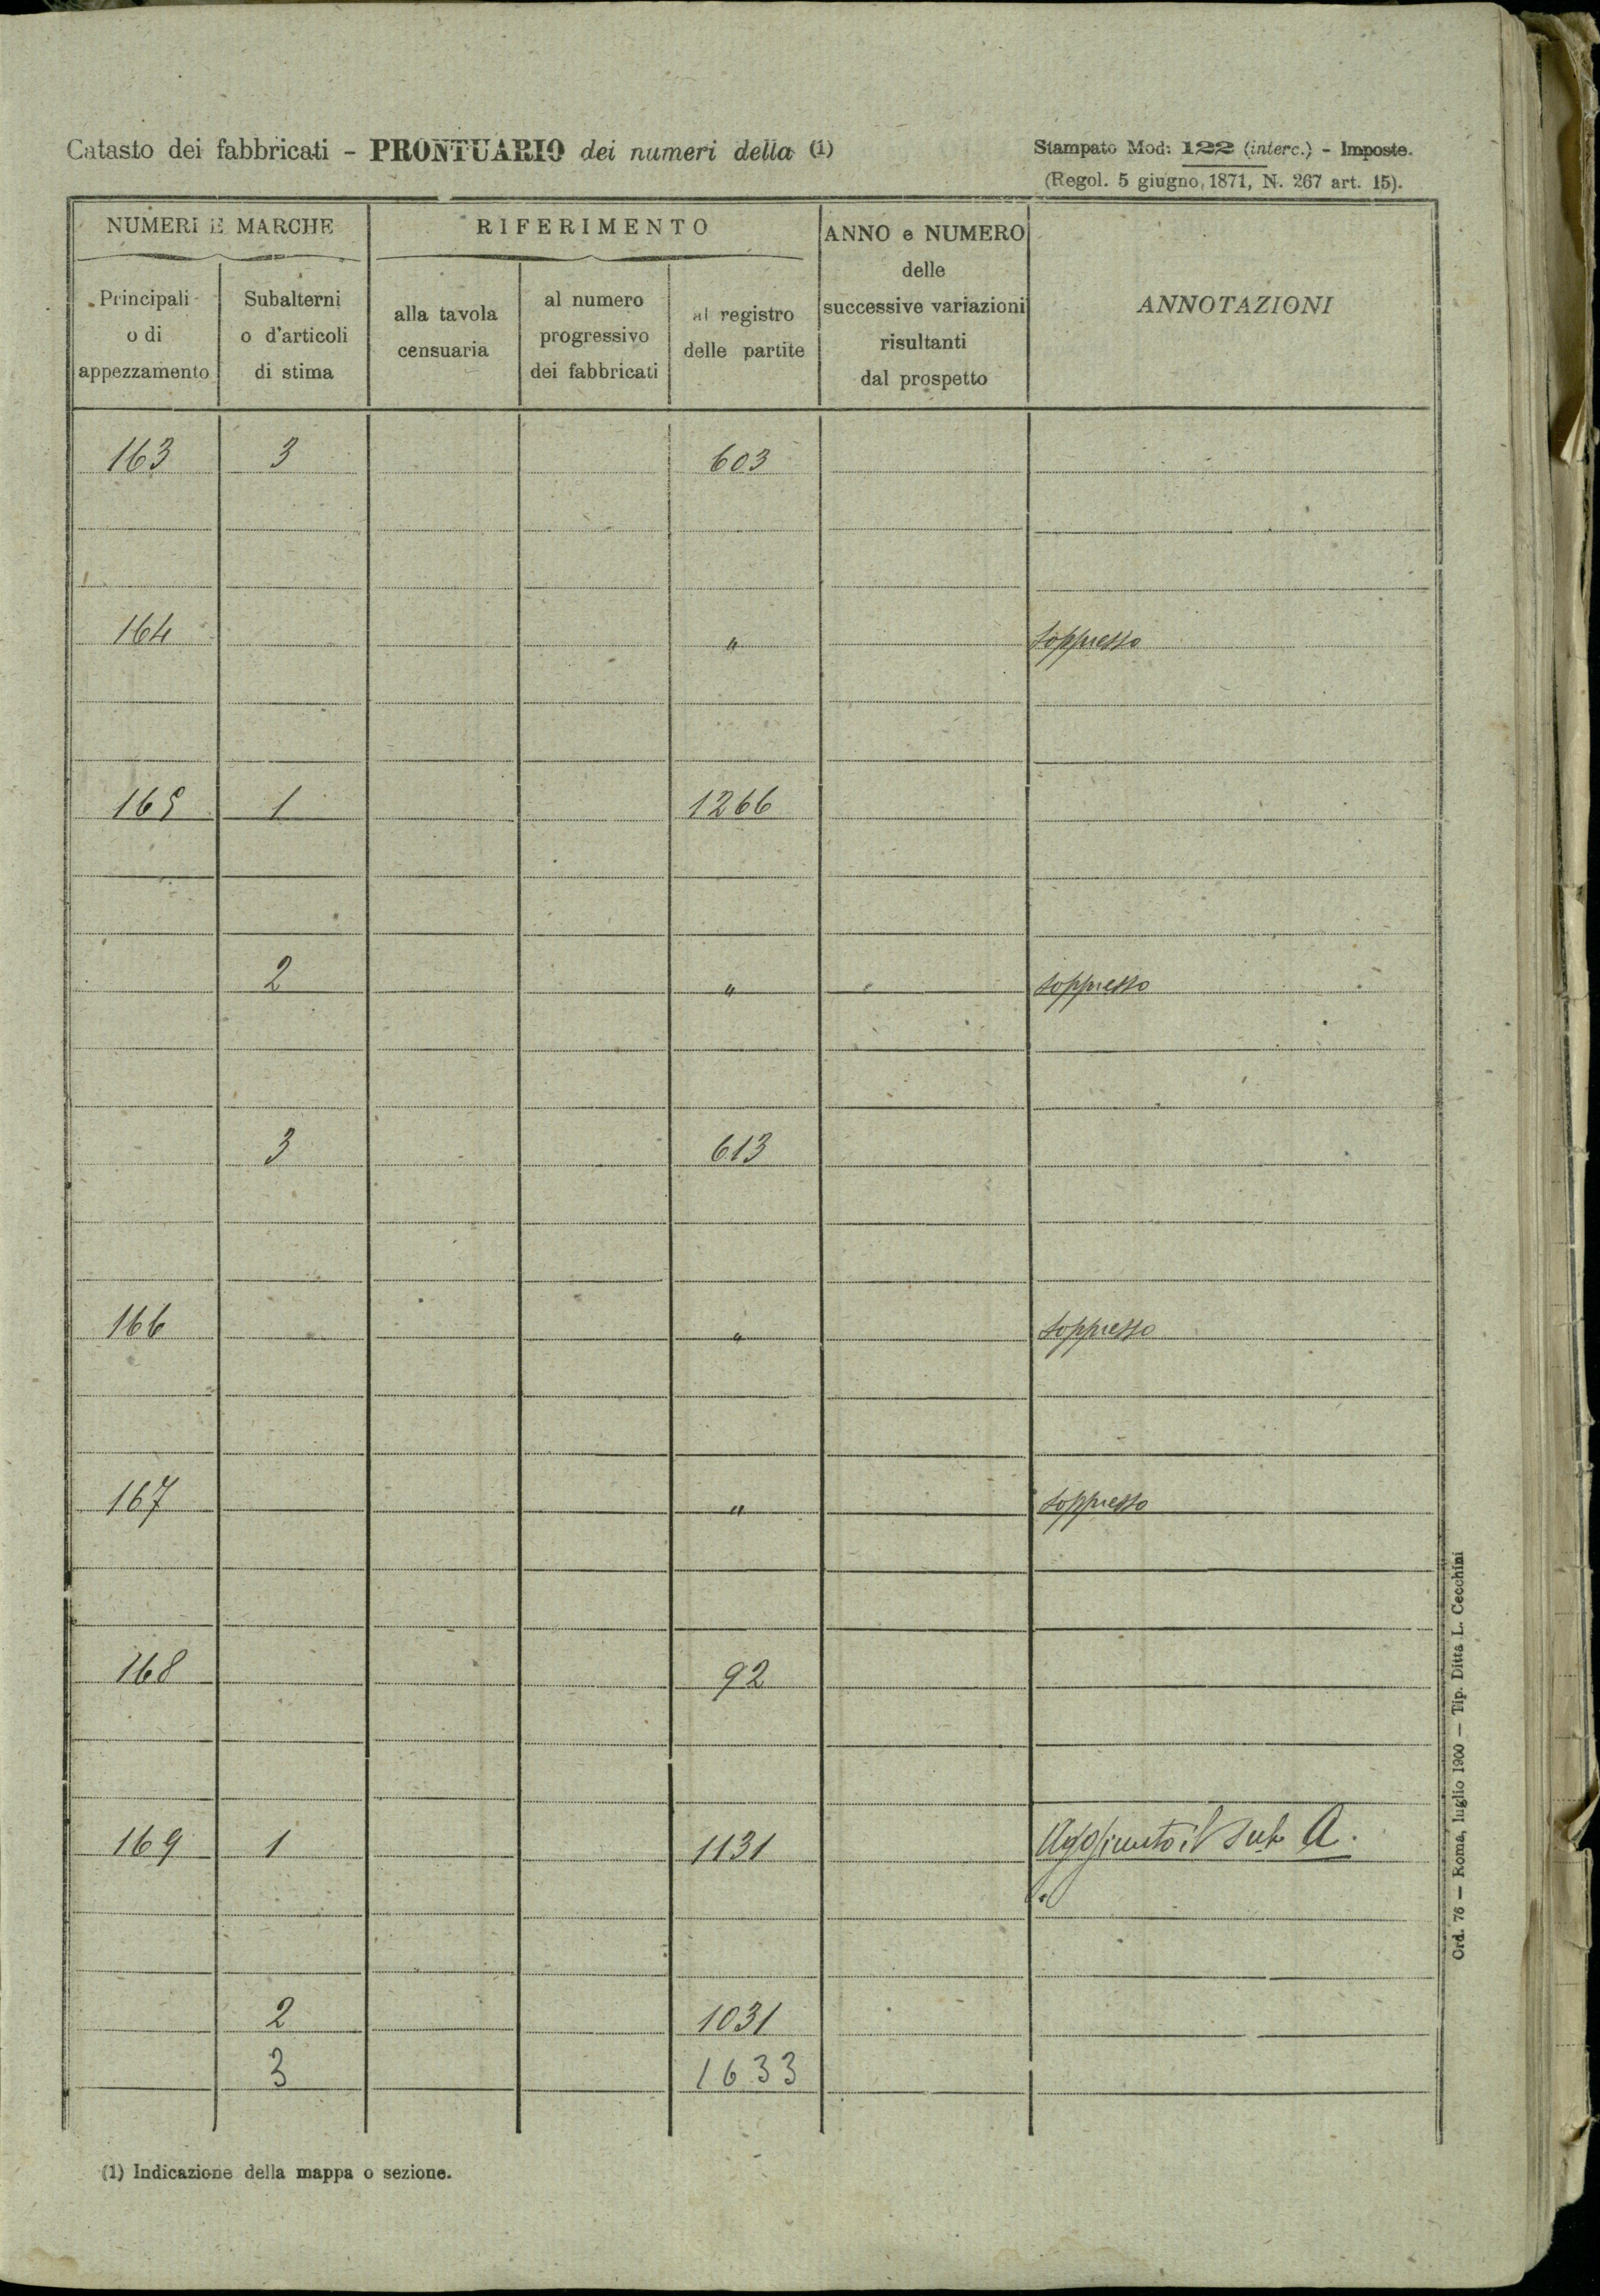 Catasto dei fabbricati - PRONTUARIO dei numeri della (1)
Stampato Mod: 122 (interc.) - Imposte.
(Regol. 5 giugno, 1871, N. 267 art. 15).
NUMERI E MARCHE
RIFERIMENTO
ANNO e NUMERO
delle
successive variazioni
risultanti
dal prospetto
ANNOTAZIONI
Principali
o di
appezzamento
Subalterni
o d'articoli
di stima
alla tavola
censuaria
al numero
progressivo
dei fabbricati
al registro
delle partite
163 3 603
164 " soppresso
165 1 1266
2 " " soppresso
3 613
166 " soppresso
167 " soppresso
168 92
169 1 1131 Aggiunto il Sub A.
2 1031
3 1633
(1) Indicazione della mappa o sezione.
Ord. 76 — Roma, luglio 1900 — Tip. Ditta L. Cecchini